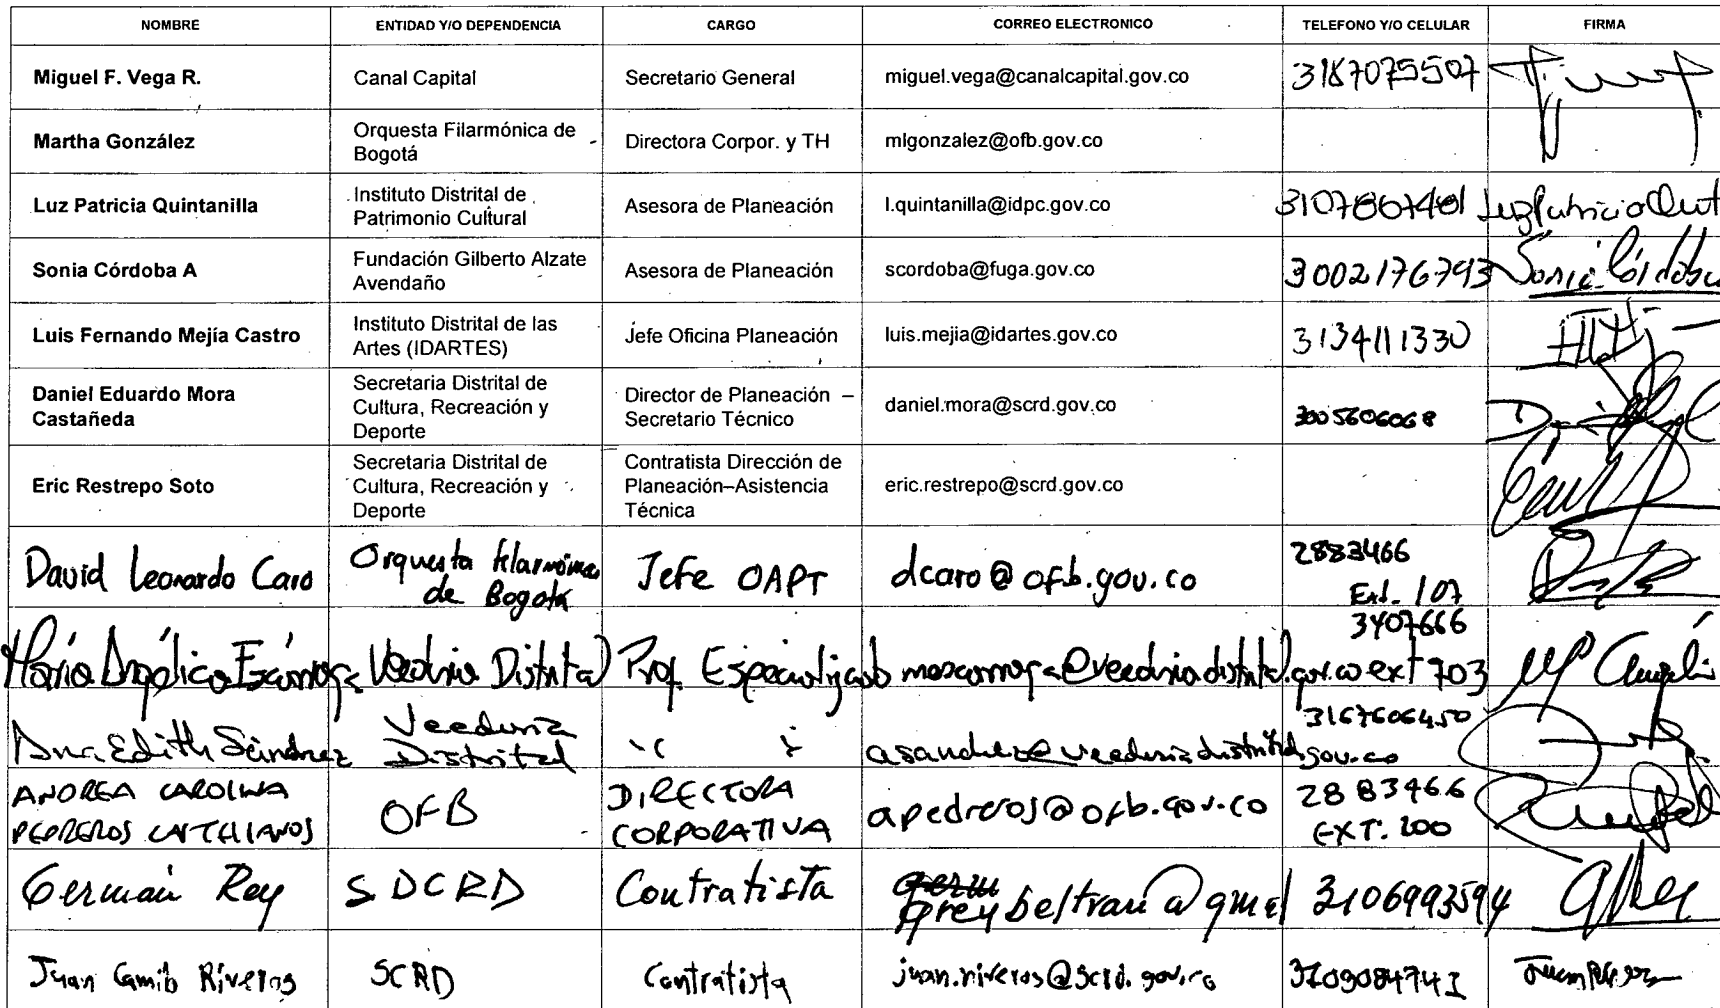 NOMBRE ENTIDAD Y/O DEPENDENCIA CARGO CORREO ELECTRONICO TELEFONO Y/O CELULAR FIRMA
Miguel F. Vega R. Canal Capital Secretario General miguel.vega@canalcapital.gov.co
Martha González Orquesta Filarmónica de Bogotá Directora Corpor. y TH mlgonzalez@ofb.gov.co
Luz Patricia Quintanilla Instituto Distrital de Patrimonio Cultural Asesora de Planeación l.quintanilla@idpc.gov.co 3107867481
Sonia Córdoba A Fundación Gilberto Alzate Avendaño Asesora de Planeación scordoba@fuga.gov.co 3002176793 Sonia Córdoba
Luis Fernando Mejía Castro Instituto Distrital de las Artes (IDARTES) Jefe Oficina Planeación luis.mejia@idartes.gov.co 3134111330
Daniel Eduardo Mora Castañeda Secretaria Distrital de Cultura, Recreación y Deporte Director de Planeación – Secretario Técnico daniel.mora@scrd.gov.co 3005606068
Eric Restrepo Soto Secretaria Distrital de Cultura, Recreación y Deporte Contratista Dirección de Planeación–Asistencia Técnica eric.restrepo@scrd.gov.co
David Leonardo Caro Orquesta filarmónica de Bogotá Jefe OAPT dcaro@ofb.gov.co 2883466 Ext. 107
María Angélica Escárraga Veeduría Distrital Prof. Especializado 3407666 ext 703
Ana Edith Sánchez Veeduría Distrital asanchez@veeduriadistrital.gov.co 3167606450
ANDREA CAROLINA PEDREROS DIRECTORA CORPORATIVA OFB apedreros@ofb.gov.co 2883466 EXT. 200
Germán Rey SDCRD Contratista greybeltran@gmal 3106993594
Juan Camilo Riveros SCRD Contratista juan.riveros@scrd.gov.co